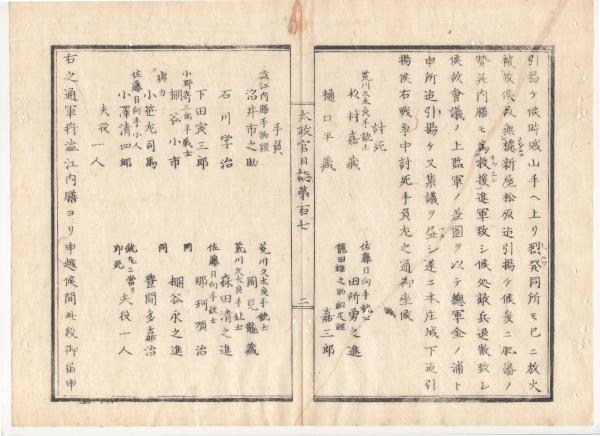 引揚ケ候時賊山手ヘ上リ烈發同所モ已ニ放火
致候故無據新屋松原迄引揚ケ候處ニ肥藩ノ
勢并内膳モ為救援進軍致シ候処敵兵退散致シ
候故會議ノ上監軍ノ差圖ヲ以テ總軍金ノ浦ト
申所迄引揚ケ又集議ヲ盡シ遂ニ本庄城下迄引
揚候右戰爭中討死手負左之通御座候
討死
荒川久太良手銃士
杉村嘉藏
佐藤日向手銃士
田所勇之進
樋口平藏
龍田雄之助組足輕
嘉三郎
太政官日誌第百七
二
手負
澁江内膳手物頭
沼井市之助
荒川久太良手銃士
岡見龍藏
石川学治
荒川久太良手銃士
森田清之進
下田寅三郎
佐藤日向手銃士
那珂頌治
小野寄三郎手戰士
棚谷小市
同
棚谷永之進
與力
小笹左司馬
同
豊間多嘉治
佐藤日向手小人
小澤清四郎
銃丸ニ當リ即死
夫役一人
夫役一人
右之通軍将澁江内膳ヨリ申越候間此段御届申